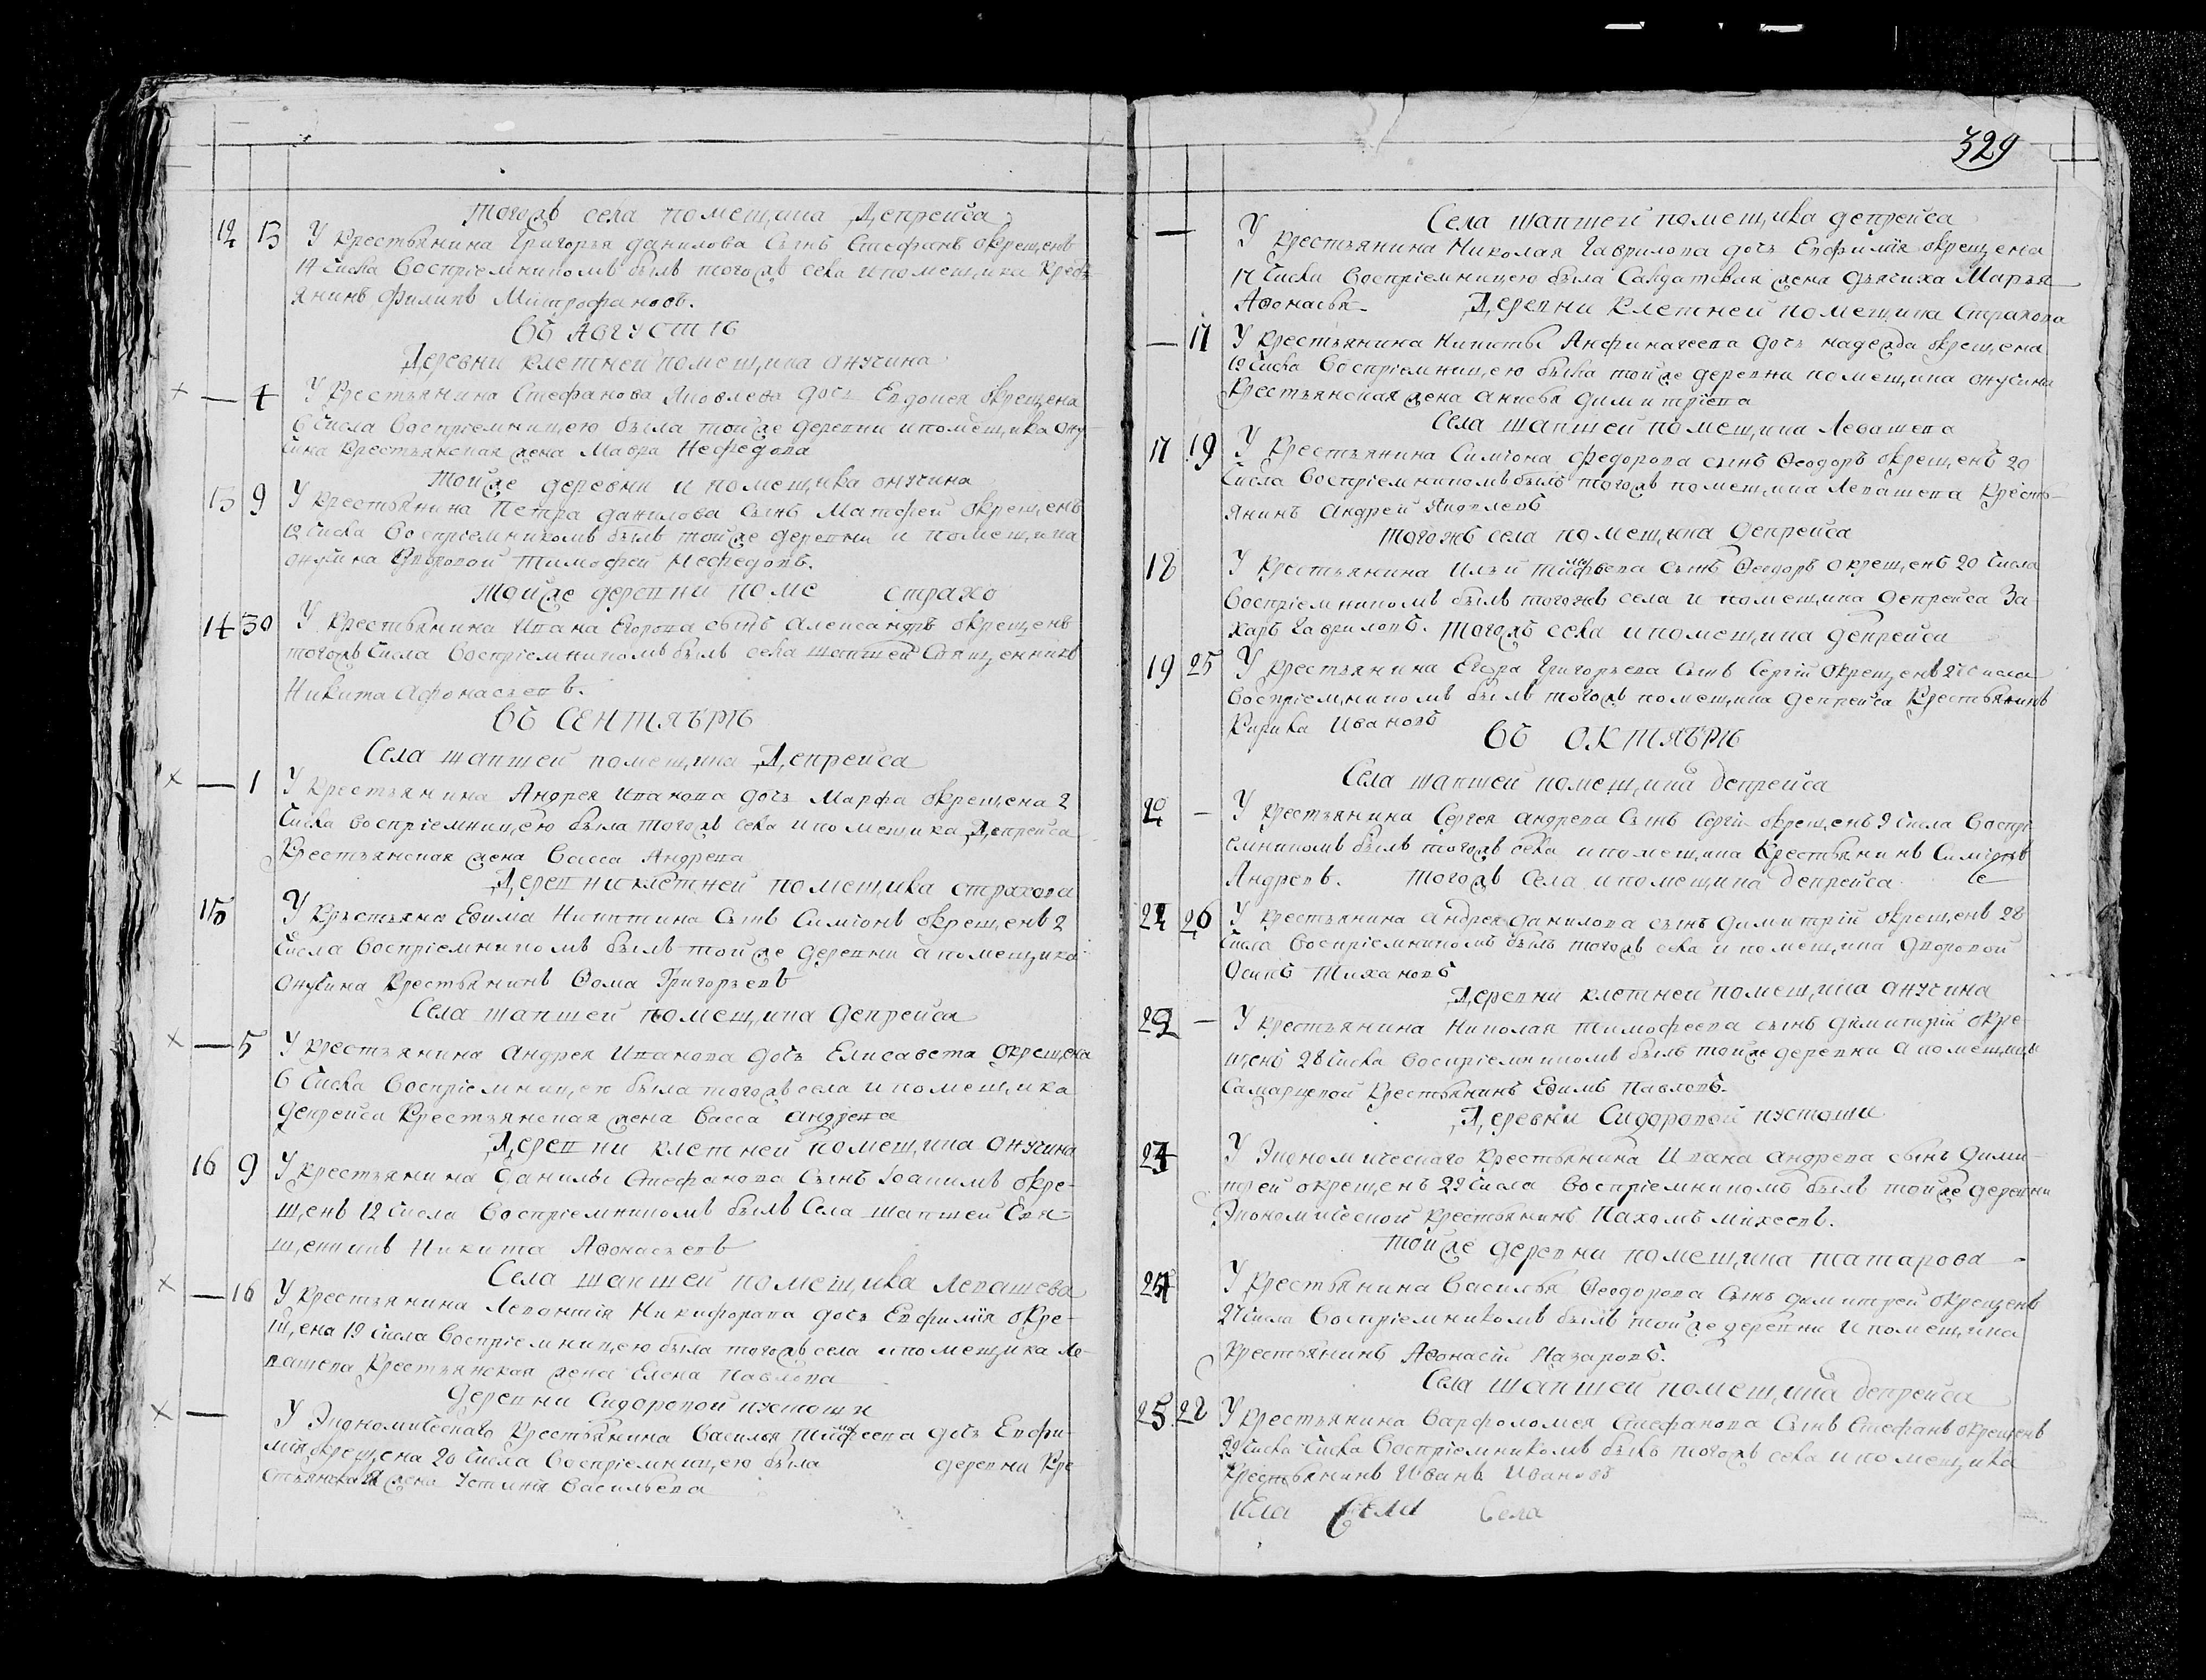 тогожъ села помещика Депрейса
12 13 У крестьянина Григорья данилова сынъ Стефанъ окрещенъ
14 числа воспріемникомъ былъ тогожъ села ипомещика крест-
янинъ филипъ Митрофановъ.
Въ АВГУСТѢ
Деревни клетней помещика онучина
× — 4 У крестьянина Стефанова Яковлева дочь Евдокея окрещена
6 числа воспріемницею была тойже деревни ипомещика ону-
чина крестьянская жена Мавра Нефедова
Тойже деревни и помещика онучина
13 9 У крестьянина Петра данилова сынъ Матфей окрещенъ
12 числа воспріемникомъ былъ тойже деревни и помещика
онучина дворовой тимофей Нефедовъ.
Тойже деревни поме страхо
14 30 У крестьянина Ивана Егорова сынъ Александръ окрещенъ
тогожъ числа воспріемникомъ былъ села шапшей Священникъ
Никита Афонасьевъ.
Въ СЕНТЯБРѢ
Села шапшей помещика Депрейса
× — 1 У крестьянина Андрея Иванова дочь Марфа окрещена 2
числа воспріемницею была тогожъ села ипомещика Депрейса
крестьянская жена Васса Андрева
Деревни клетней помещика страхова
15 У крестьяна Ефима Никитина сынъ Симіонъ окрещенъ 2
числа воспріемникомъ былъ тойже деревни апомещика
онучина крестьянинъ Ѳома Григорьевъ
Села шапшей помещика депрейса
× — 5 У крестьянина андрея Иванова дочь Елисавета окрещена
6 числа воспріемницею была тогожъ села ипомещика
депрейса крестьянская жена Васса андрева
Деревни клетней помещика онучина
16 9 У крестьянина данилы Стефанова сынъ Іоакимъ окре-
щенъ 12 числа воспріемникомъ былъ Села шапшей Свя-
щенникъ Никита Аѳонасьевъ
Села шапшей помещика Левашева
× — 16 У крестьянина Левонтія Никифорова дочь Евфимія окре-
щена 19 числа воспріемницею была тогожъ села ипомещика Ле-
вашева крестьянская жена Елена Павлова
деревни Сидоровой пустоши
× — У Экономическаго крестьянина Василья тимофеева дочь Евфи-
мія окрещена 20 числа воспріемницею была деревни кре
стьянская жена Устинія Васильева
329
Села шапшей помещика депрейса
— У крестьянина Николая Гаврилова дочь Евфимія окрещена
17 числа воспріемницею была Салдатская жена Марья
Аѳонасья Деревни клетней помещика Страхова
— 17 У крестьянина Никиты Анфиногеева дочь надежда окрещена
19 числа воспріемницею была тойже деревни помещика онучина
крестьянская жена анисья димитріева
Села шапшей помещика Левашева
17 19 У крестьянина Симіона федорова сынъ Ѳеодоръ окрещенъ 20
числа воспріемникомъ былъ тогожъ помещика Левашева кресть-
янинъ Андрей Яковлевъ
Тогожъ села помещика депрейса
18 У крестьянина Ильи тимофьева сынъ Ѳеодоръ окрещенъ 20 числа
воспріемникомъ былъ тогожъ села и помещика депрейса За-
харъ Гавриловъ. Тогожъ села ипомещика депрейса
19 25 У крестьянина Егора Григорьева сынъ Сергій окрещенъ 27 числа
воспріемникомъ былъ тогожъ помещика депрейса крестьянинъ
Кирика Ивановъ
Въ ОКТЯБРѢ
Села шапшей помещика депрейса
20 — У крестьянина Сергея андрева сынъ Сергій окрещенъ 9 числа воспрі-
емникомъ былъ тогожъ села ипомещика крестьянинъ Симіонъ
Андревъ. Тогожъ села ипомещика депрейса Се
21 26 У крестьянина андрея данилова сынъ димитрій окрещенъ 28
числа воспріемникомъ былъ тогожъ села и помещика дворовой
Осипъ Тихановъ
Деревни клетней помещика онучина
22 — У крестьянина Николая тимофеева сынъ димитрій окре-
щенъ 28 числа воспріемникомъ былъ тойже деревни а помещицы
Самарцевой крестьянинъ Ефимъ Павловъ.
Деревни Сидоровой пустоши
23 У Экономическаго крестьянина Ивана андрева сынъ дими-
трей окрещенъ 29 числа воспріемникомъ былъ тойже деревни
Экономической крестьянинъ Пахомъ михеевъ.
Тойже деревни помещика татарова
24 У крестьянина Василья Ѳеодорова сынъ димитрей окрещенъ
27 числа воспріемникомъ былъ тойже деревни ипомещика
крестьянинъ Аѳонасій Назаровъ.
Села шапшей помещика депрейса
25 28 У крестьянина Варфоломея Стефанова сынъ Стефанъ окрещенъ
29 числа числа воспріемникомъ былъ тогожъ села ипомещика
крестьянинъ Иванъ Ивановъ
села Села Села